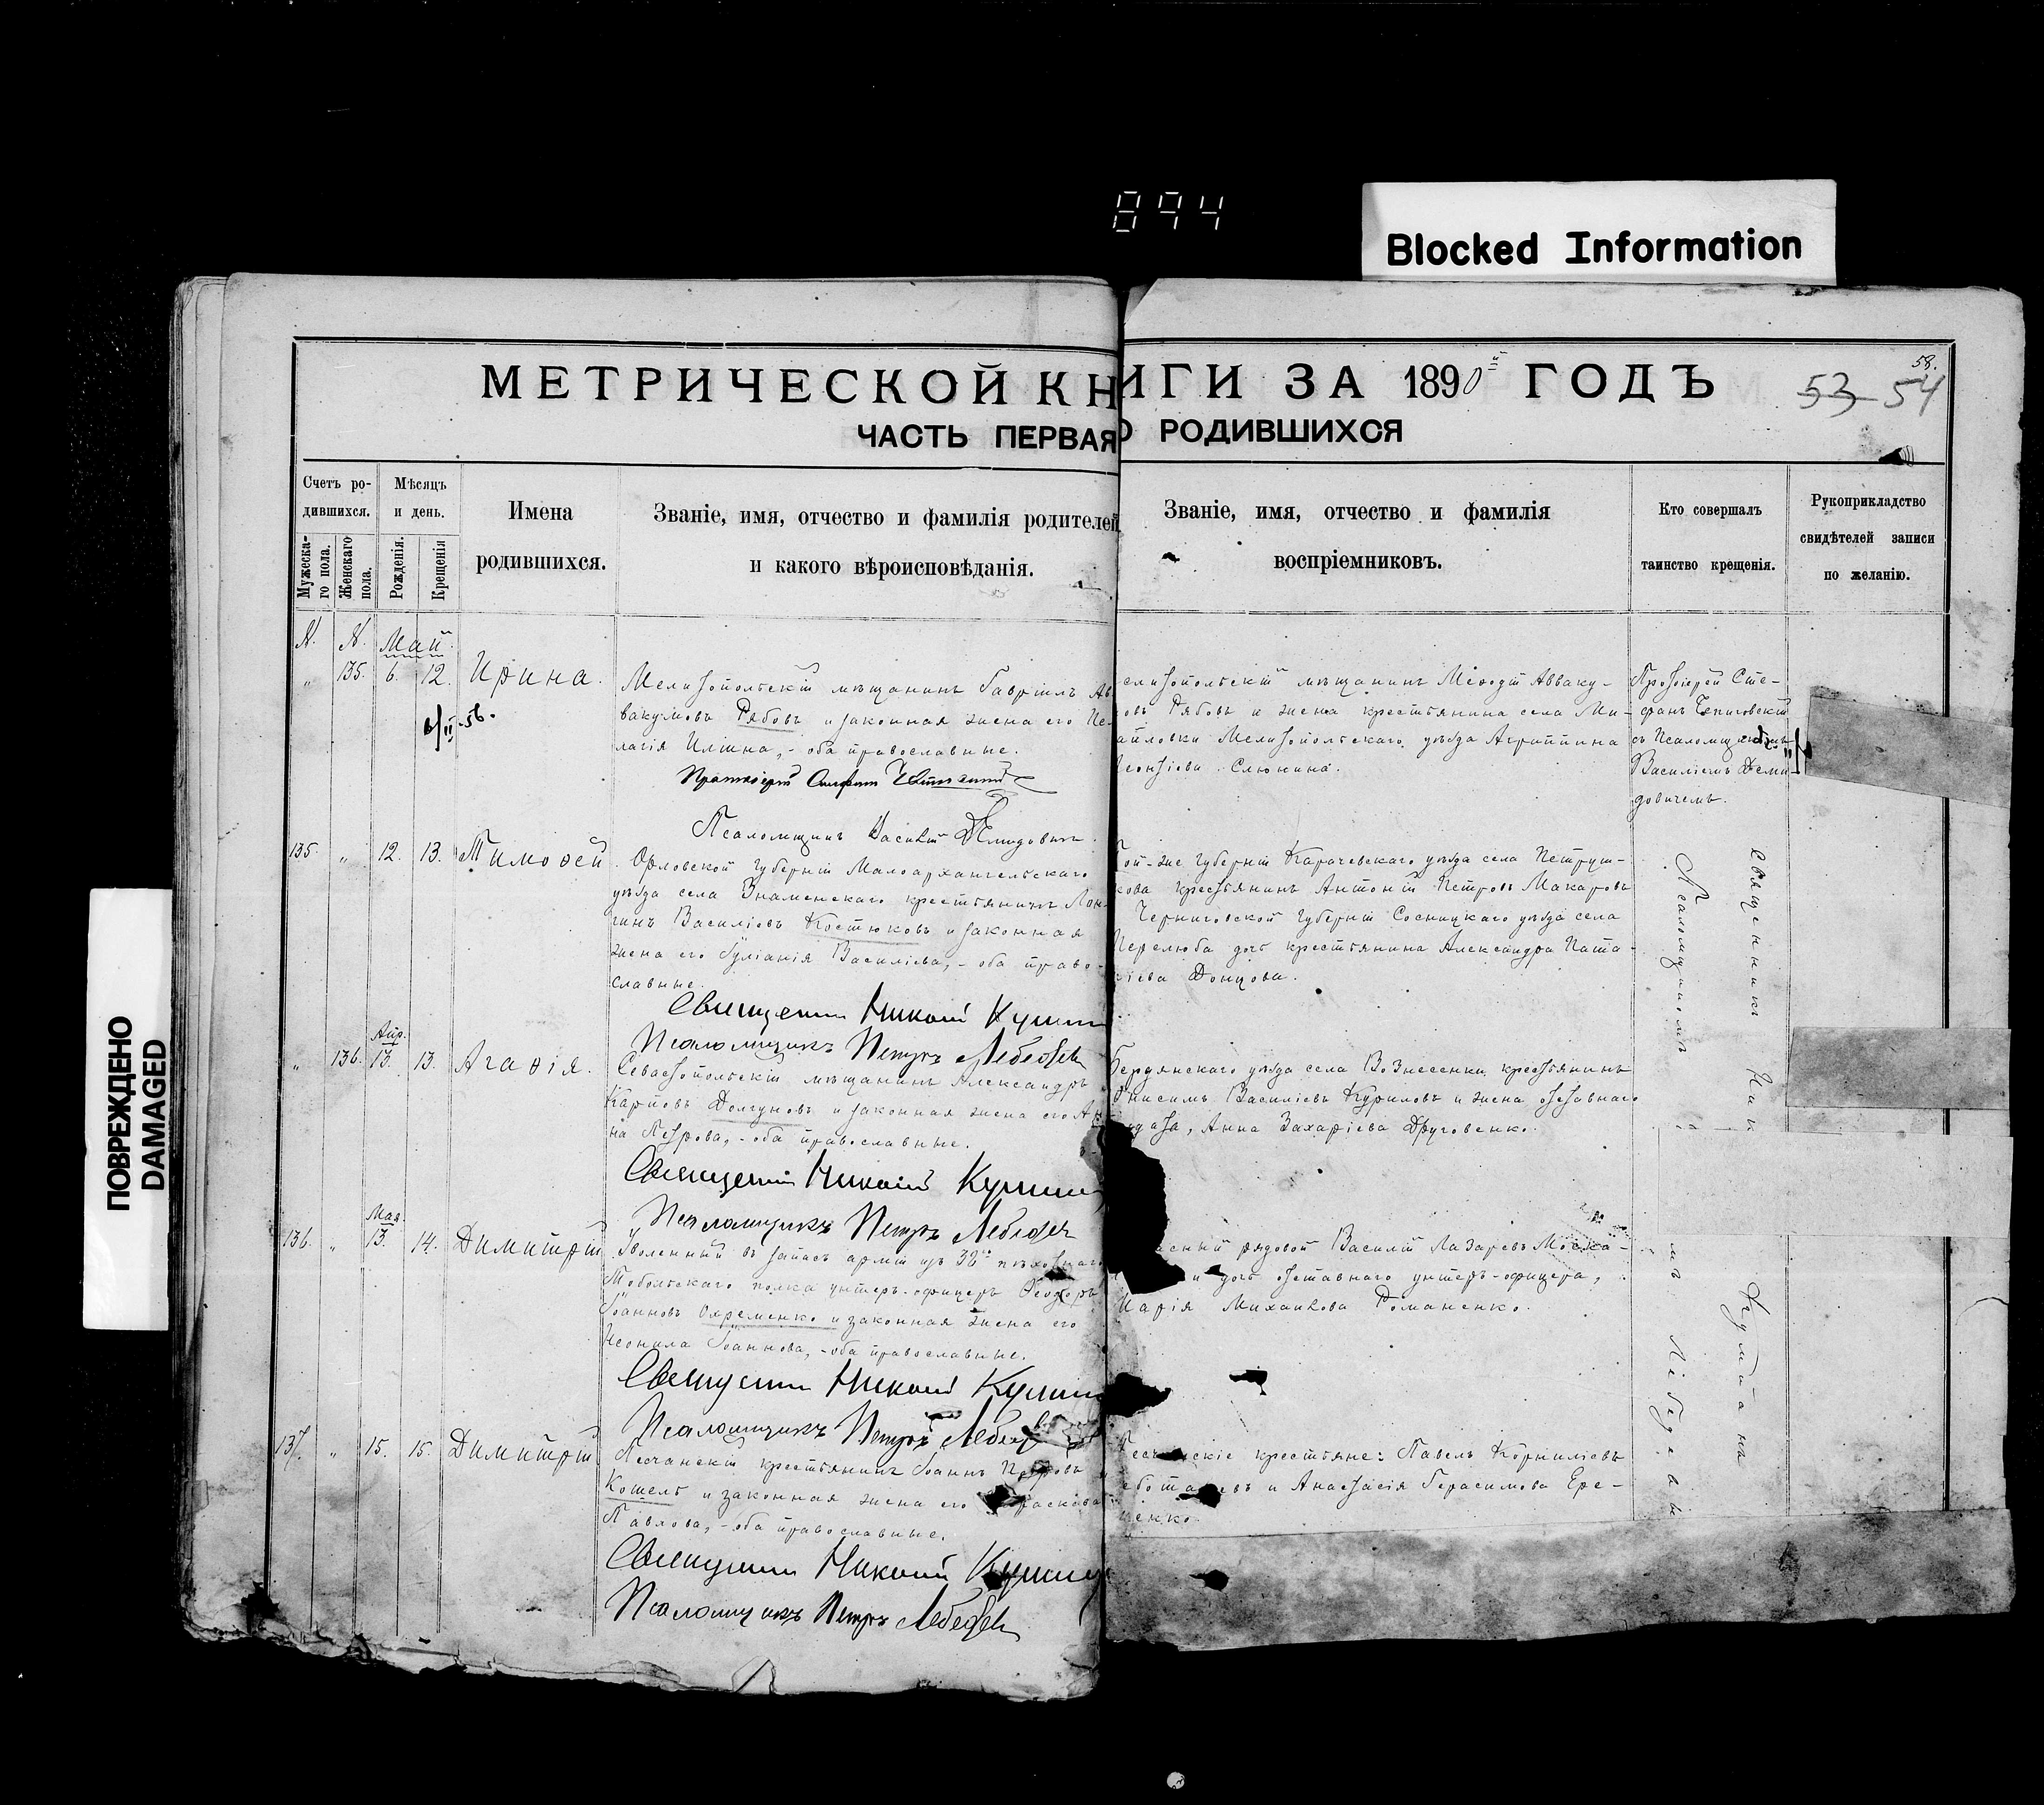 894
Blocked Information
ПОВРЕЖДЕНО
DAMAGED
МЕТРИЧЕСКОЙ КНИГИ ЗА 1890й ГОДЪ
58.
53 54
ЧАСТЬ ПЕРВАЯ О РОДИВШИХСЯ
Счетъ ро-
дившихся.
Мужеска-
го пола.
Женскаго
пола.
Мѣсяцъ
и день.
Рожденія.
Крещенія
Имена
родившихся.
Званіе, имя, отчество и фамилія родителей
и какого вѣроисповѣданія.
Званіе, имя, отчество и фамилія
воспріемниковъ.
Кто совершалъ
таинство крещенія.
Рукоприкладство
свидѣтелей записи
по желанію.
№. №. Май
" 135. 6. 12. Ирина.
Мелитопольскій мѣщанинъ Гавріилъ Ав
вакумовъ Рябовъ и законная жена его Пе
лагія Илiина, - оба православные.
Псаломщикъ Василій Демидовичъ
елитопольскій мѣщанинъ Меѳодій Авваку-
овъ Рябовъ и жена крестьянина села Ми-
айловки Мелитопольскаго уѣзда Агриппина
Слюнина.
Протоіерей Сте-
фанъ
съ Псаломщикомъ
Василіемъ Деми-
довичемъ.
135. " 12. 13. Тимоѳей
Орловской губерніи Малоархангельскаго
уѣзда села Знаменскаго крестьянинъ Лон-
гинъ Василіевъ Костюковъ и законная
жена его Іуліанія Василіева, - оба право-
славные.
Священникъ Николай
Псаломщикъ Петръ Лебедев
Той-же губерніи Карачевскаго уѣзда села Петруш-
кова крестьянинъ Антоній Петровъ Макаровъ
Черниговской губерніи Сосницкаго уѣзда села
Перелюба дочь крестьянина Александра Пата-
Донцова.
" 136. Апр. 13. 13. Агаѳія.
Севастопольскій мѣщанинъ Александръ
Карповъ Долгуновъ и законная жена его Ан
на Петрова, - оба православные.
Священникъ Николай
Псаломщикъ Петръ Лебедев
Бердянскаго уѣзда села Вознесенки крестьянинъ
Онисимъ Василіевъ Куриловъ и жена отставнаго
Анна Захаріева Друговенко.
136. " Мая 13. 14. Димитрій
Уволенный въ запасъ арміи изъ 38го пѣхотнаго
Тобольскаго полка унтеръ-офицеръ Ѳеодоръ
Іоанновъ Охременко и законная жена его
Неонила Іоаннова, - оба православные.
Священникъ Николай
Псаломщикъ Петръ Лебедев
асный рядовой Василій Лазаревъ Моска-
и дочь отставнаго унтеръ-офицера,
Марія Михаилова Романенко.
137. " 15. 15. Димитрій
Песчанскій крестьянинъ Іоаннъ Петровъ
Кошель и законная жена его Параскева
Павлова, - оба православные.
Священникъ Николай
Псаломщикъ Петръ Лебедев
Песчанскіе крестьяне: Павелъ Корниліевъ
и Анастасія Герасимова Ере-
менко.
Священникъ Ник
Псаломщикомъ